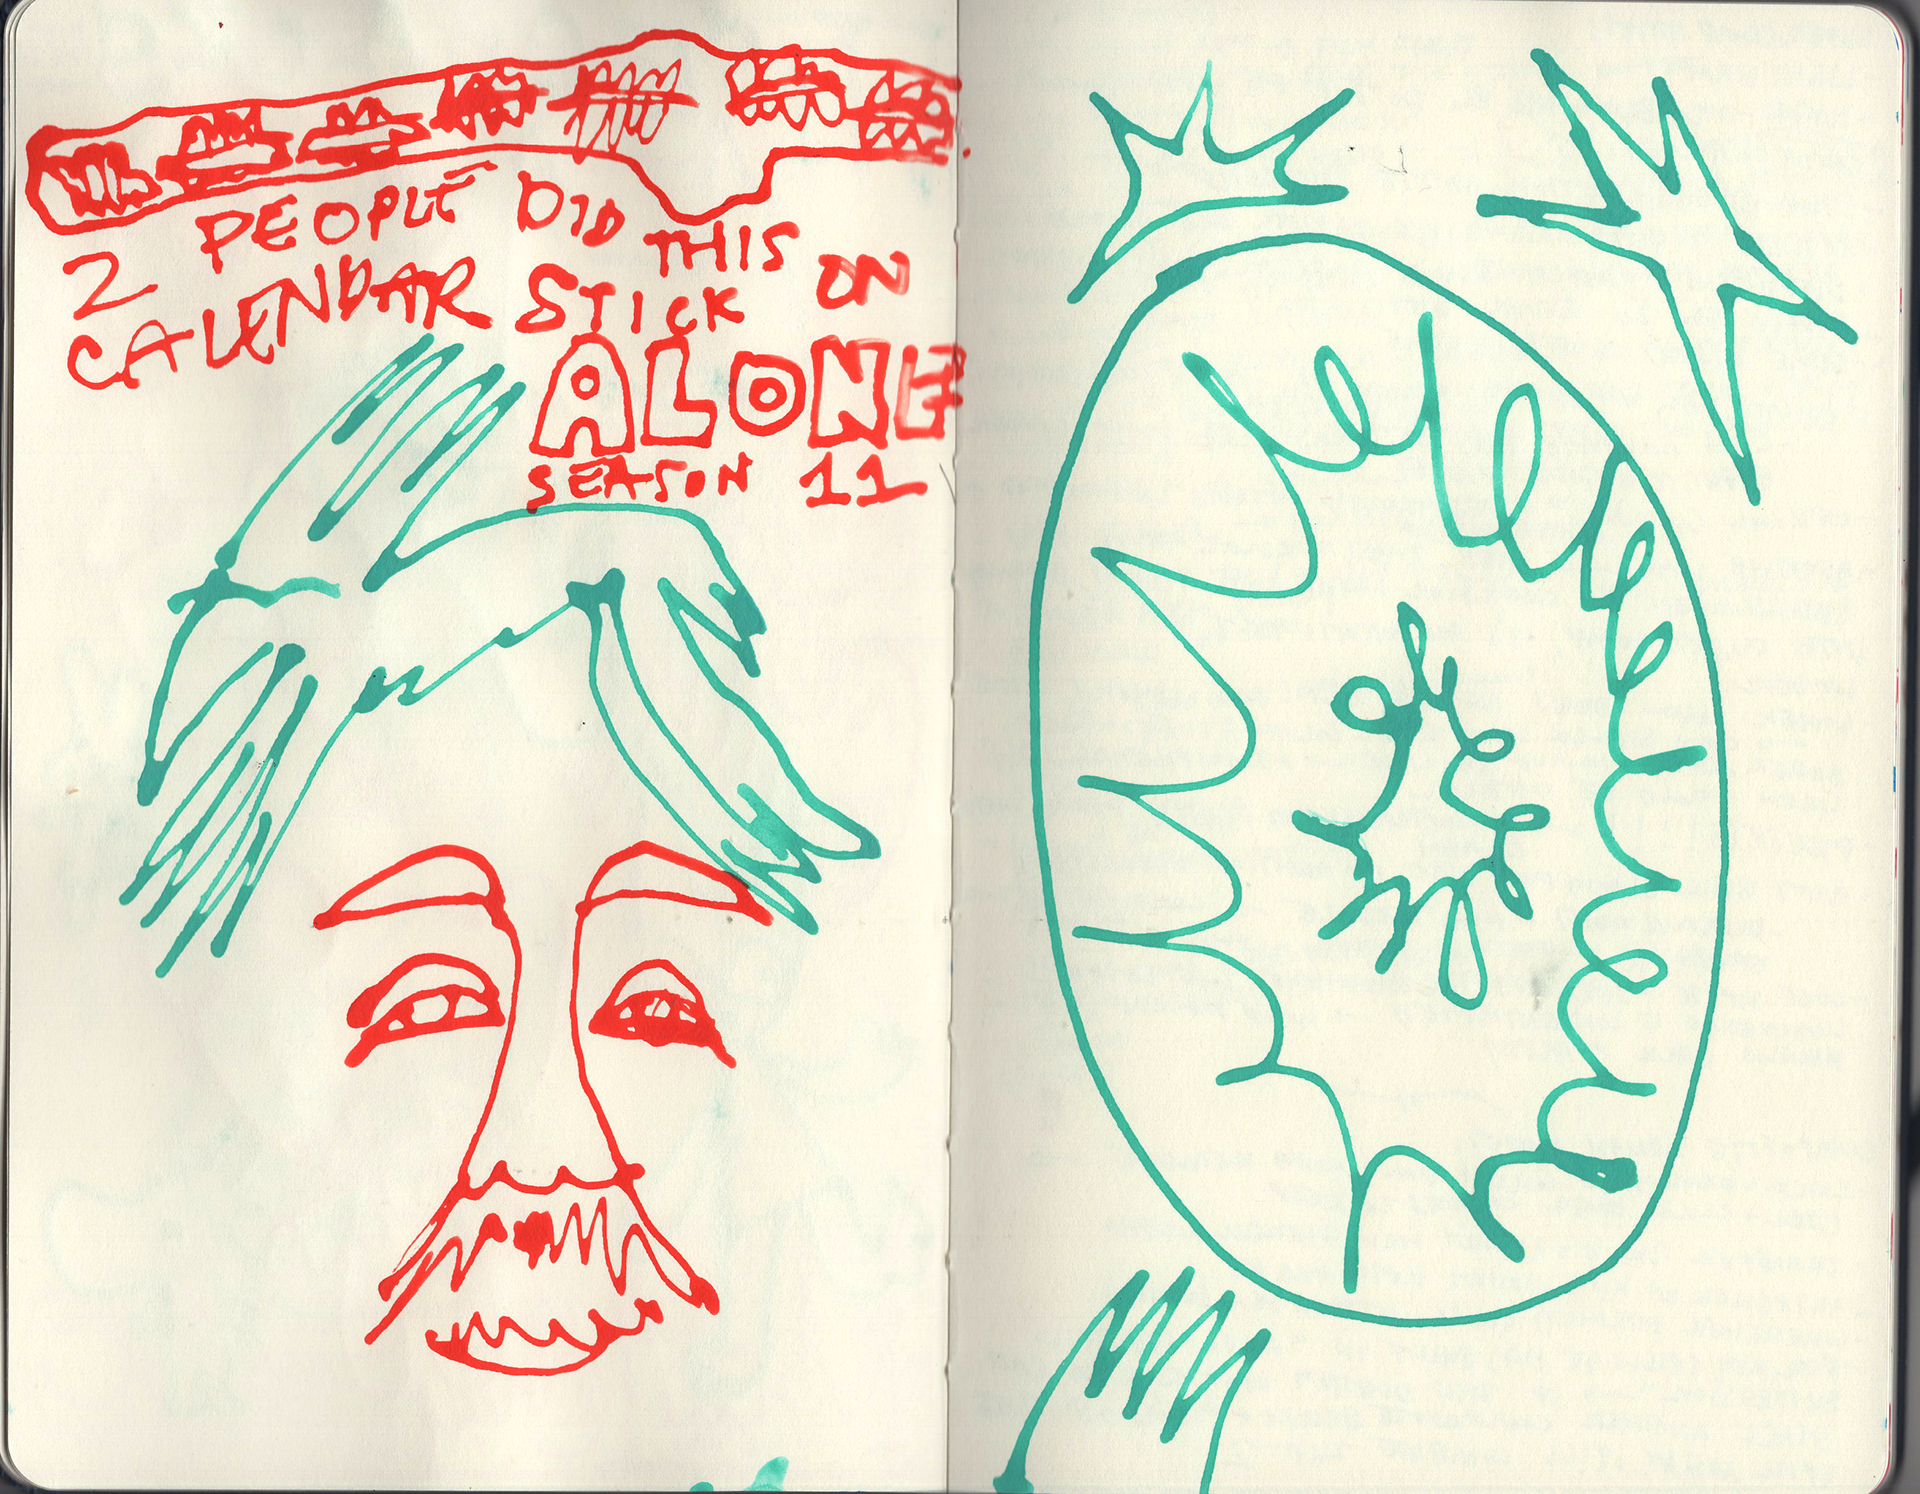 2 PEOPLE DID THIS ON
CALENDAR STICK
ALONE
SEASON 11